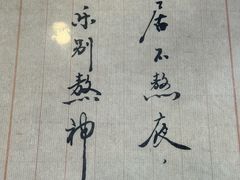 居不熬夜，
乐别熬神